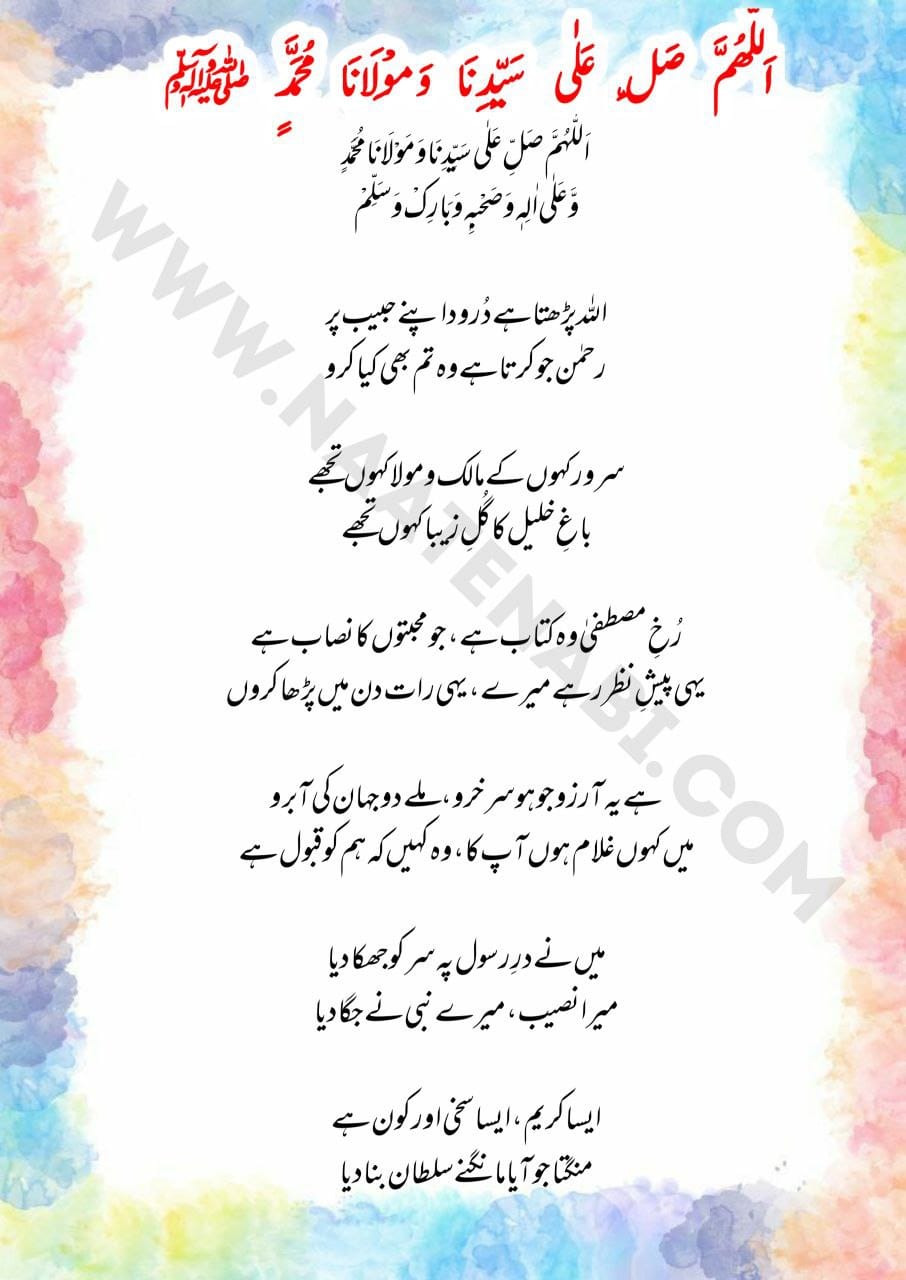 اَللّٰھُمَّ صَلِّ عَلٰی سَیِّدِنَا وَمَوْلَانَا مُحَمَّدٍ ﷺ
اَللّٰہُمَّ صَلِّ عَلٰی سَیِّدِنَا وَ مَوْلَانَا مُحَمَّدٍ
وَّ عَلٰی اٰلِہٖ وَ صَحْبِہٖ وَ بَارِکْ وَ سَلِّمْ
اللہ پڑھتا ہے دُرود اپنے حبیب پر
رحمٰن جو کرتا ہے وہ تم بھی کیا کرو
سرور کہوں کے مالک و مولا کہوں تجھے
باغِ خلیل کا گُلِ زیبا کہوں تجھے
رُخِ مصطفیٰ وہ کتاب ہے ، جو محبتوں کا نصاب ہے
یہی پیشِ نظر رہے میرے ، یہی رات دن میں پڑھا کروں
ہے یہ آرزو جو ہو سرخرو، ملے دو جہان کی آبرو
میں کہوں غلام ہوں آپ کا، وہ کہیں کہ ہم کو قبول ہے
میں نے درِ رسول پہ سر کو جھکا دیا
میرا نصیب، میرے نبی نے جگا دیا
ایسا کریم، ایسا سخی اور کون ہے
منگتا جو آیا مانگنے سلطان بنا دیا
WWW.NAATENABI.COM